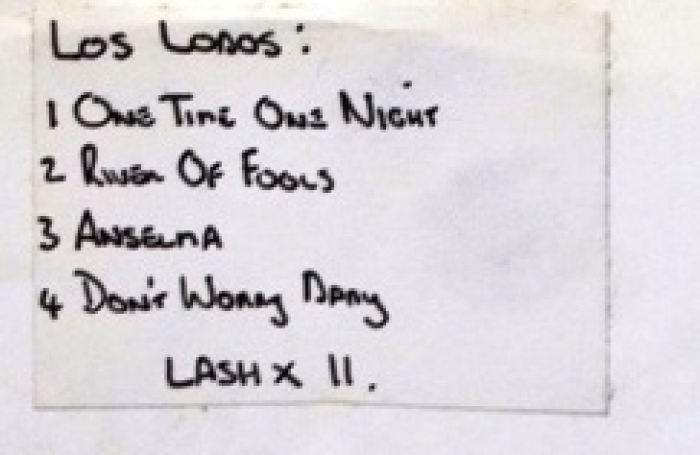 Los Lobos:
1 One Time One Night
2 River Of Fools
3 Anselma
4 Don't Worry Baby
LASH X 11.